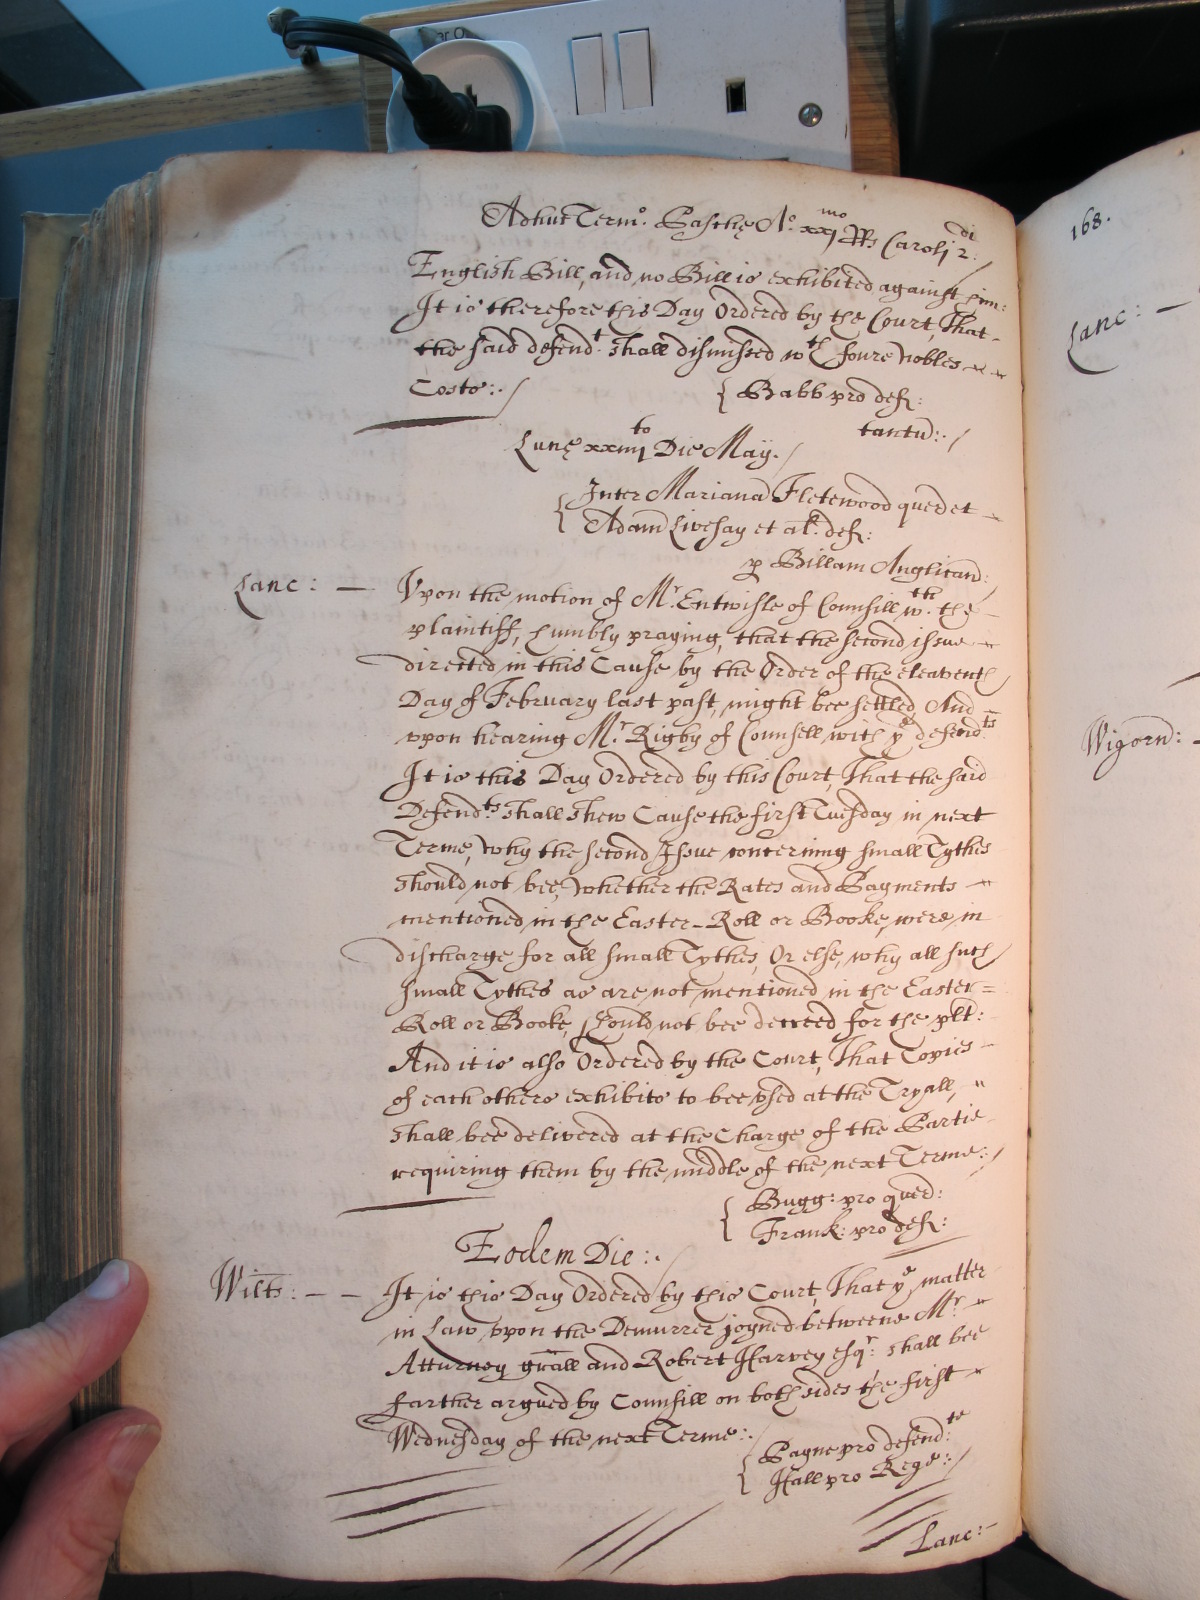 Adhuc Term<sup>o</sup>. Paschę A<sup>o</sup>. xxj<sup>mo</sup> RRs Caroli 2<sup>di</sup>:
168.
English Bill, and no Bill is exhibited against him:
It is therefore this Day Ordered by the Court, That
the said defend<sup>t</sup>. shall dismissed w<sup>th</sup> foure Nobles
Costs:
Babb pro def:
tantu:
Lunę xxiiij<sup>to</sup> Die Maÿ.
Inter Mariana Fletewood quer et
Adam Livesay et al. def:
p Billam Anglican:
Lanc: — Vpon the motion of M<sup>r</sup>. Entwisle of Counsill w<sup>th</sup>. the
plaintiff, humbly praying, that the second issue
directed in this Cause by the Order of the eleaventh
Day of February last past, might bee settled, And
vpon hearing M<sup>r</sup>. Rigby of Counsell with y<sup>e</sup> defend<sup>ts</sup>
It is this Day Ordered by this Court, That the said
Defend<sup>ts</sup>. shall shew Cause the first Tuesday in next
Terme, Why the second Issue concerning small Tythes
should not bee, Whether the Rates and Payments
mentioned in the Easter-Roll or Booke, were in
discharge for all small Tythes, Or else, why all such
small Tythes as are not mentioned in the Easter=
Roll or Booke, should not bee decreed for the plt:
And it is also Ordered by the Court, That Copies
of each others exhibits to bee vsed at the Tryall,
shall bee delivered at the Charge of the Partie
requiring them by the middle of the next Terme:
Bugg: pro quer:
Frank: pro def:
Eodem Die:
Wilts: — — It is this Day Ordered by this Court, That y<sup>e</sup> matter
in Law vpon the Demurrer joyned betweene M<sup>r</sup>
Atturney grall and Robert Harvey esq<sup>r</sup>: shall bee
farther argued by Counsill on both sides the first
Wednesday of the next Terme:
Payne pro defend<sup>te</sup>:
Hall pro Rege:
Lanc:
Lanc: —
Wigorn: -